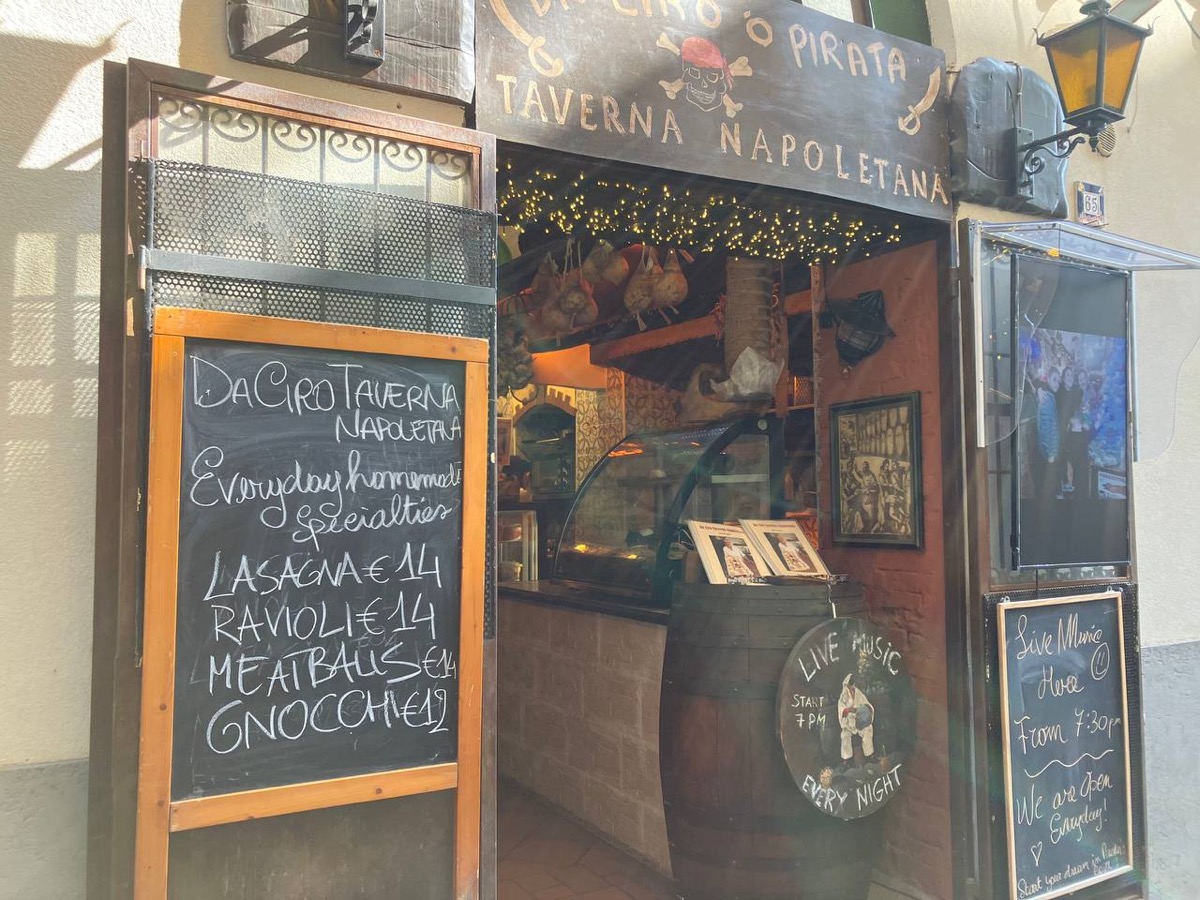 DA CIRO 'O PIRATA
TAVERNA NAPOLETANA
65
DA CIRO TAVERNA
NAPOLETANA
Everyday homemade
specialties
LASAGNA € 14
RAVIOLI € 14
MEATBALLS €14
GNOCCHI €12
LIVE MUSIC
START
7 PM
EVERY NIGHT
Live Music
Here
From 7:30pm
We are Open
Everyday!
Start your dream in